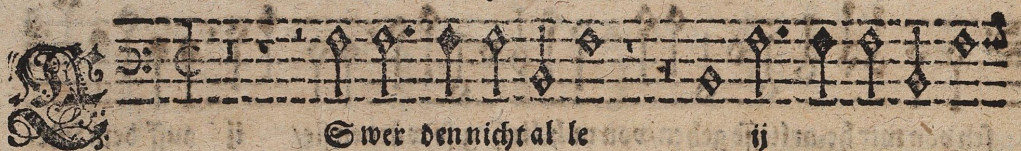 ES wer den nicht al le ij